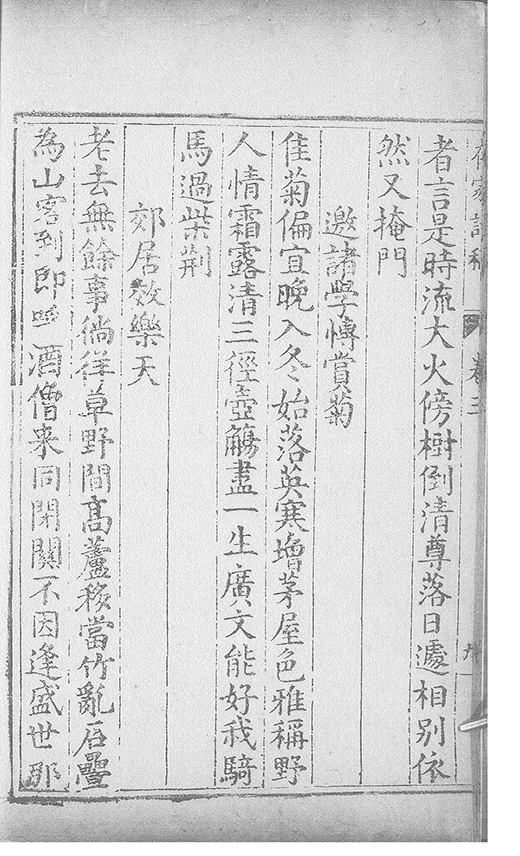 卷三
者言是時流大火傍樹倒清尊落日遽相别依
然又掩門
邀諸學愽賞菊
佳菊偏宜晚入冬始落英寒增茅屋色雅稱野
人情霜露清三徑壺觴盡一生廣文能好我騎
馬過柴荆
郊居效樂天
老去無餘事徜徉草野間髙蘆移當竹亂石壘
為山客到即呼酒僧来同閉關不因逢盛世那